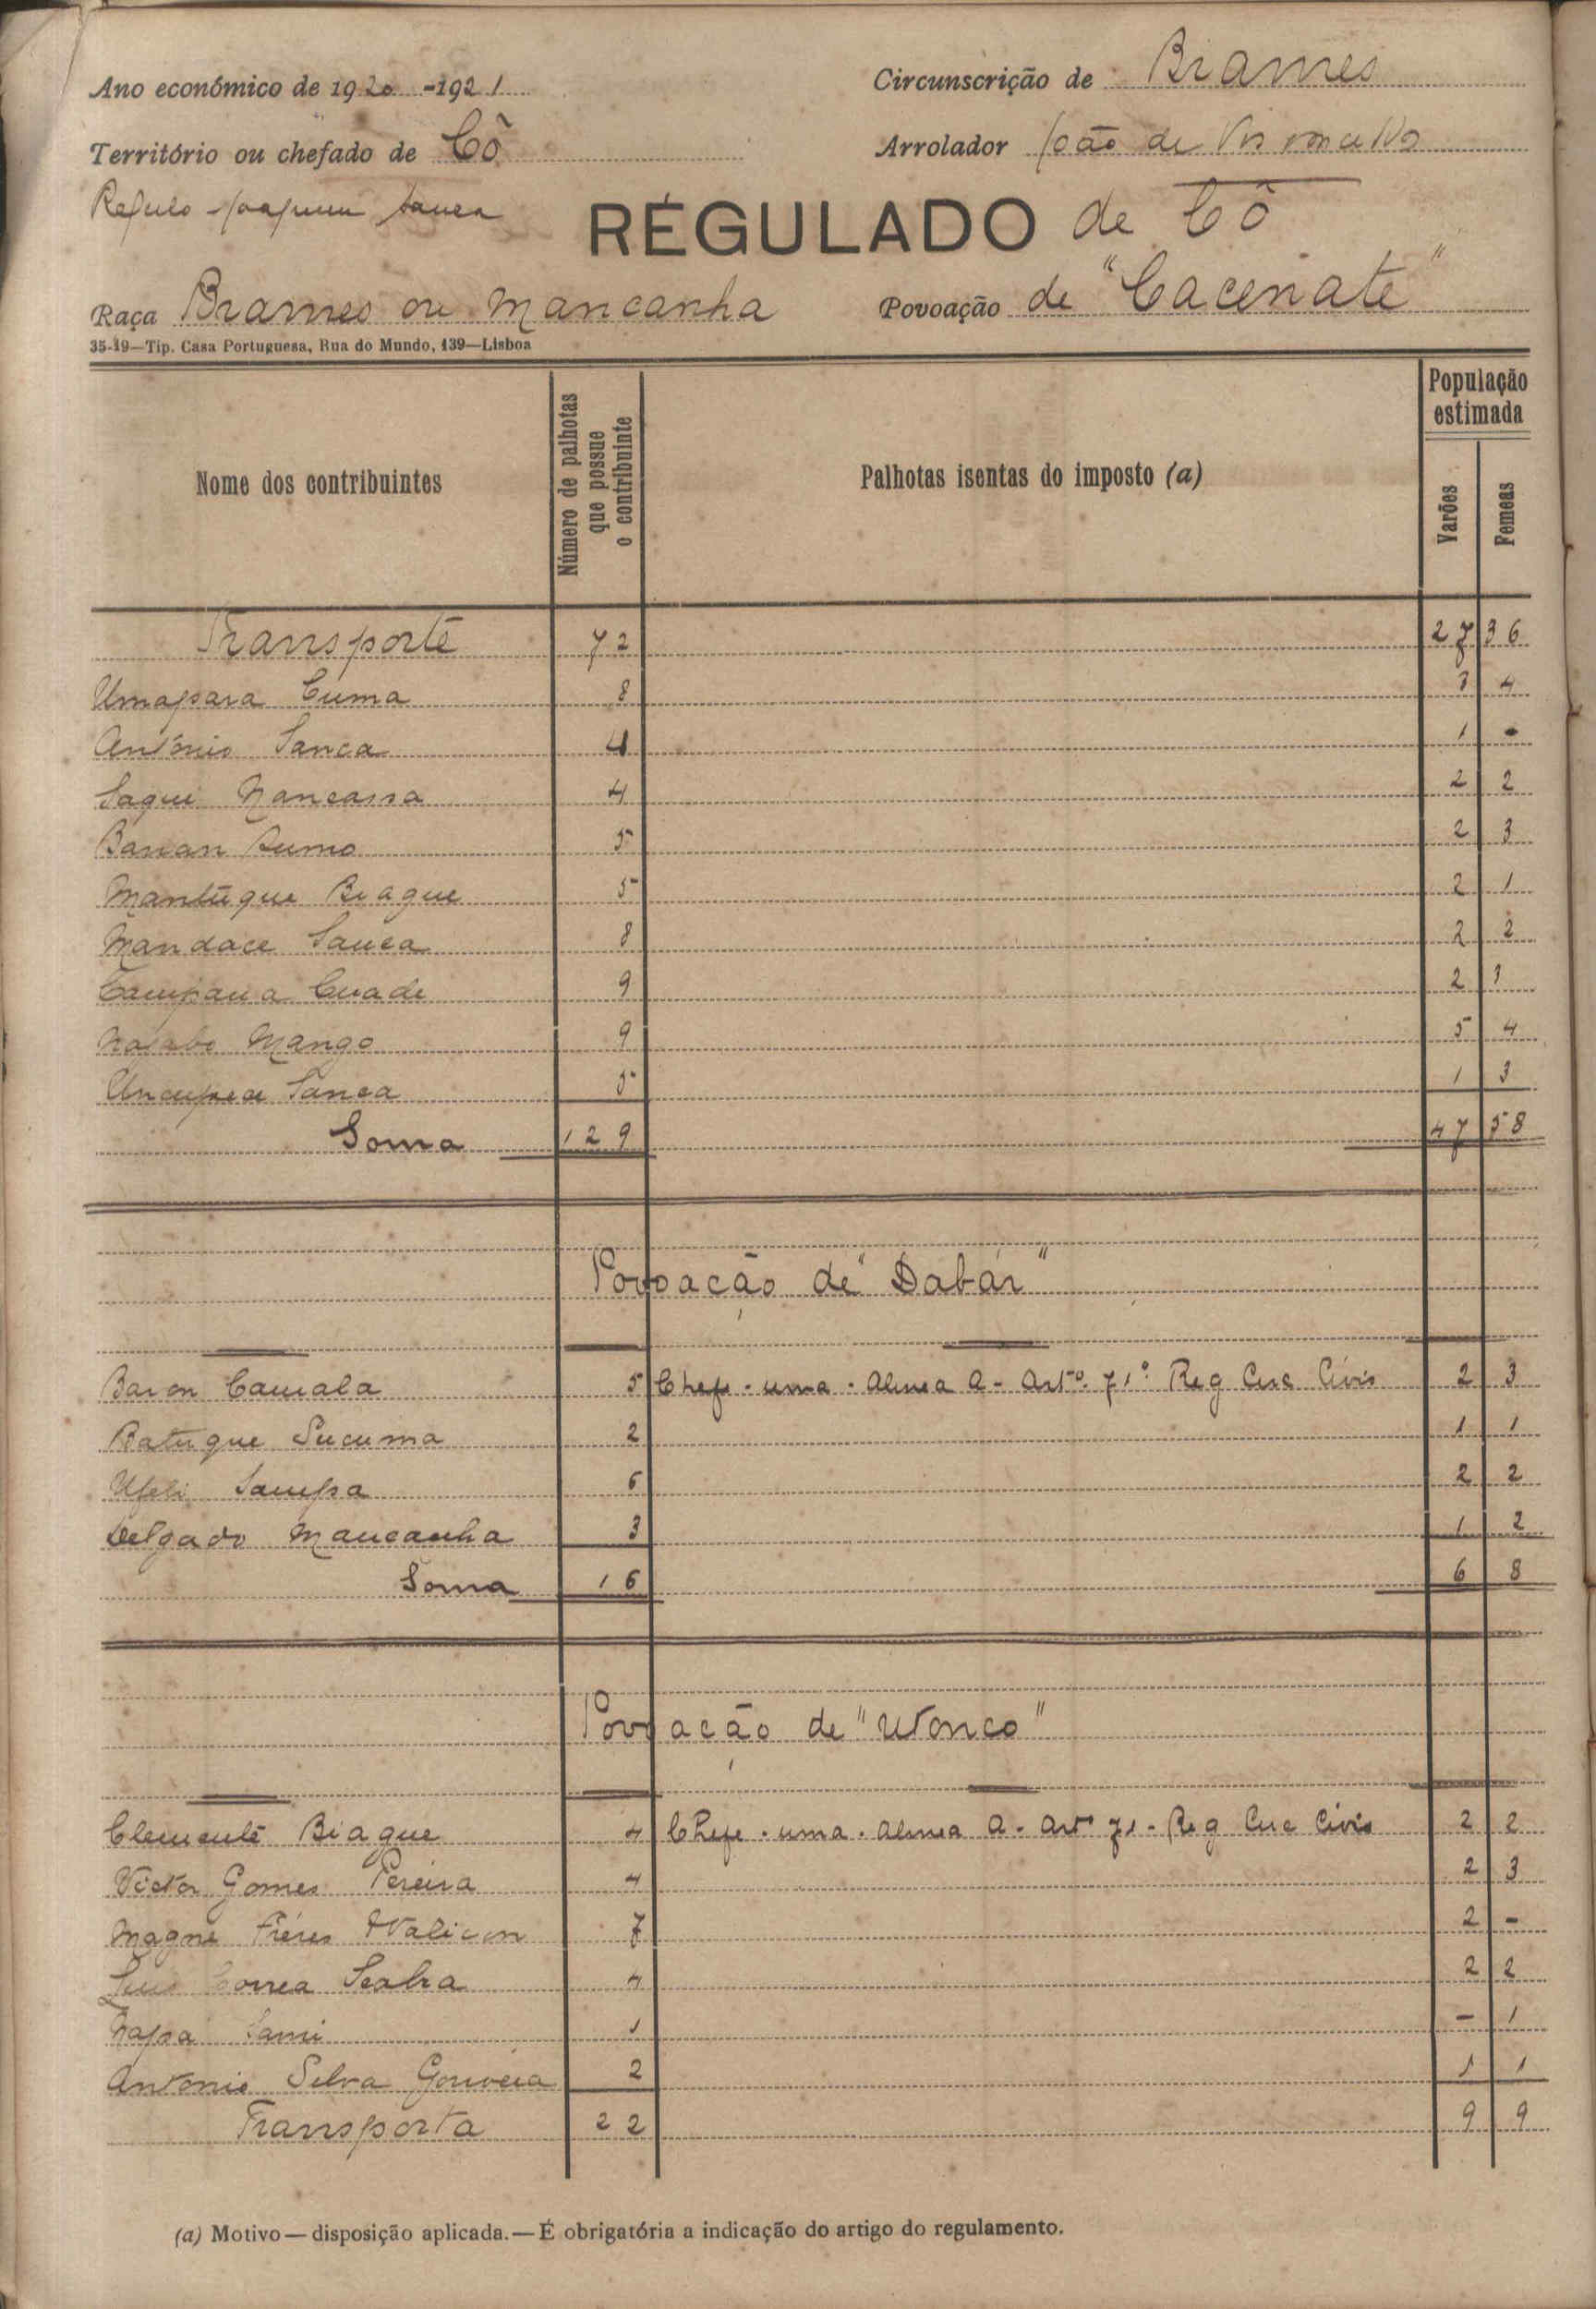 Ano económico de 1920-1921
Circunscrição de Brames
Território ou chefado de Cô
Arrolador João de
Regulo Joaquim Sanca
RÉGULADO de Cô
Raça Brames ou Mancanha
Povoação de "Cacenate"
35-19—Tip. Casa Portuguesa, Rua do Mundo, 139—Lisboa
Nome dos contribuintes
Número de palhotas que possue o contribuinte
Palhotas isentas do imposto (a)
População estimada
Varões
Femeas
Transporte 72 27 36
Umapara Cuma 8 3 4
António Sanca 4 1 -
Saqui Nancassa 4 2 2
Banan 5 2 3
Mantuque Biague 5 2 1
Mandace Sanca 8 2 2
Campana Cuade 9 2 3
Mango 9 5 4
Sanca 5 1 3
Soma 129 47 58
Povoação de "Dabár"
Baron Camala 5 Chefe - uma - Alinea A - Artº 71º Reg Circ Civis 2 3
Batuque Sucuma 2 1 1
Ufeli Sampa 6 2 2
Delgado Mancanha 3 1 2
Soma 16 6 8
Povoação de "Utonco"
Clemente Biague 4 Chefe - uma - Alinea A - Artº 71 - Reg Circ Civis 2 2
Victor Gomes Pereira 4 2 3
Magne Fréres 7 2 -
Luis Correa Seabra 4 2 2
Napa Sami 1 - 1
Antonio Silva Gouveia 2 1 1
Transporta 22 9 9
(a) Motivo — disposição aplicada. — É obrigatória a indicação do artigo do regulamento.